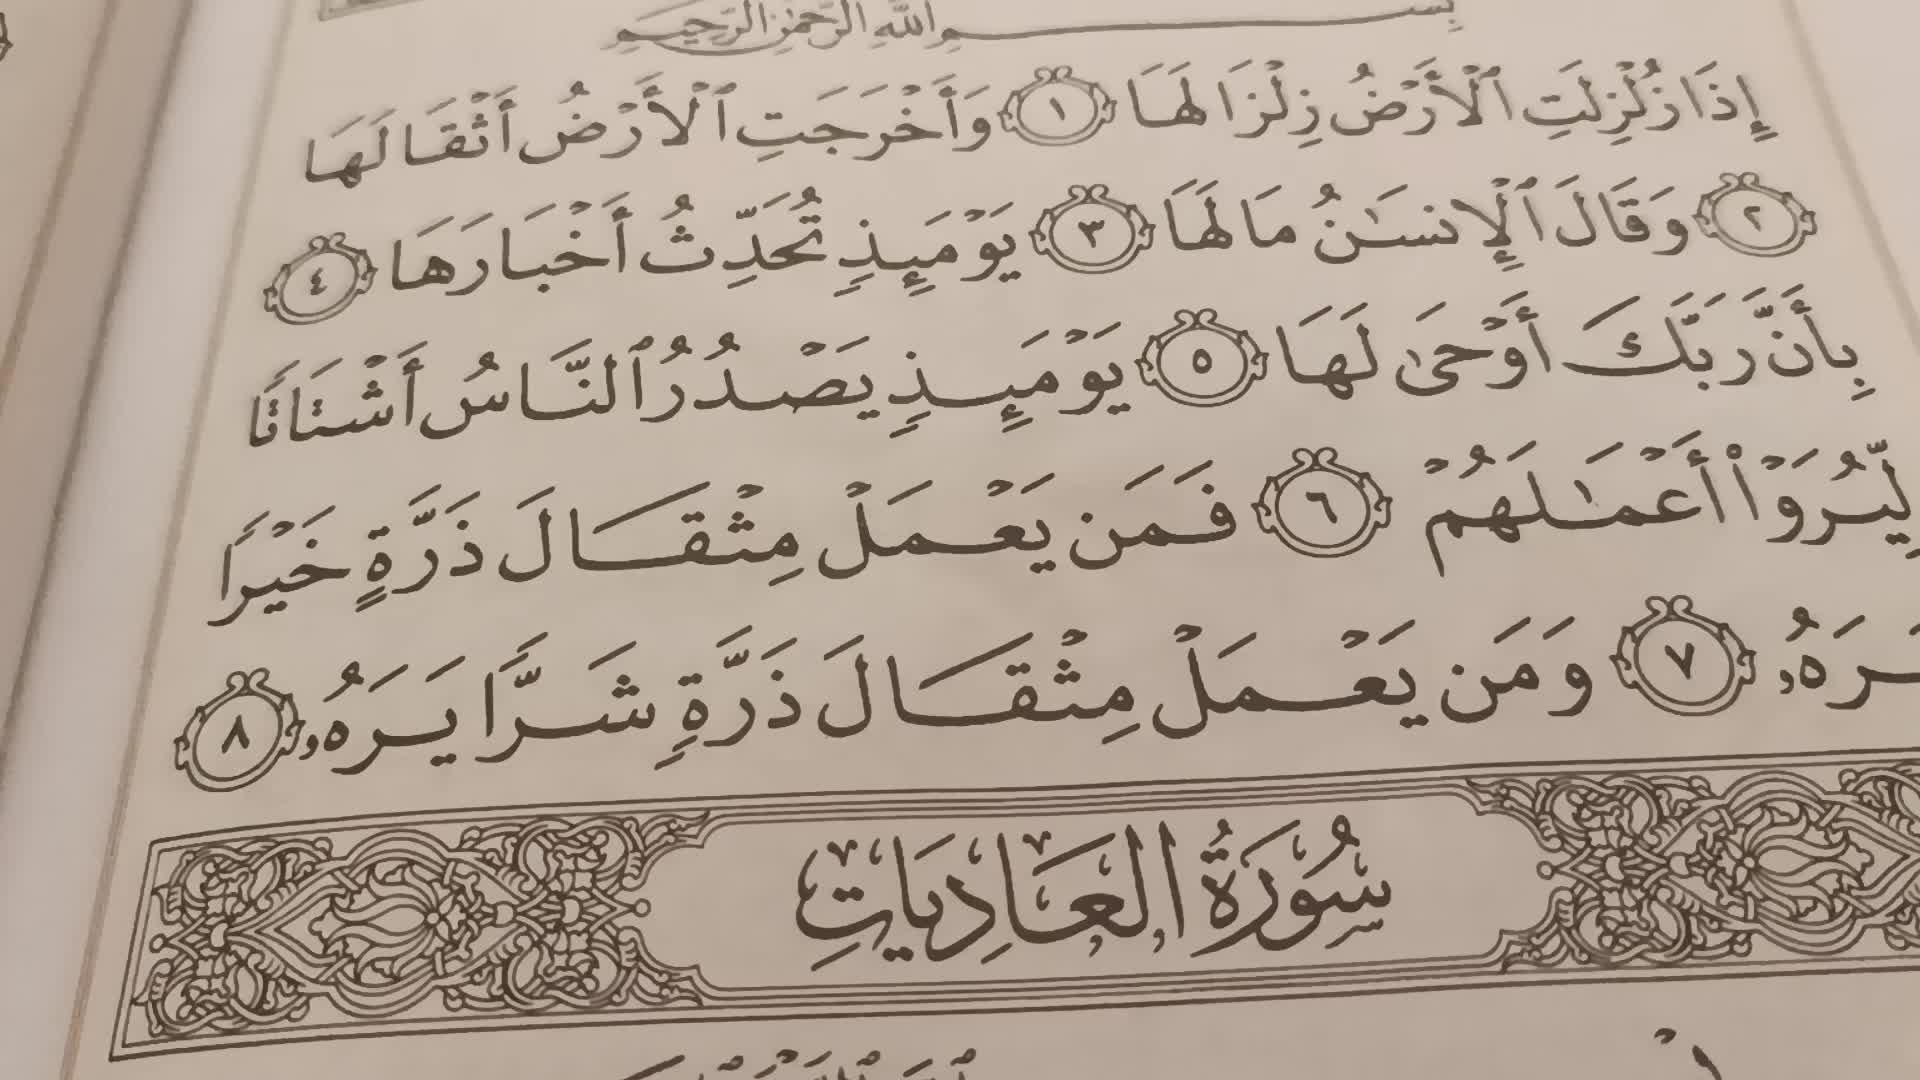 بِسْمِ ٱللَّهِ ٱلرَّحْمَٰنِ ٱلرَّحِيمِ
إِذَا زُلْزِلَتِ ٱلْأَرْضُ زِلْزَالَهَا ١ وَأَخْرَجَتِ ٱلْأَرْضُ أَثْقَالَهَا
٢ وَقَالَ ٱلْإِنسَٰنُ مَا لَهَا ٣ يَوْمَئِذٍ تُحَدِّثُ أَخْبَارَهَا ٤
بِأَنَّ رَبَّكَ أَوْحَىٰ لَهَا ٥ يَوْمَئِذٍ يَصْدُرُ ٱلنَّاسُ أَشْتَاتًا
لِّيُرَوْا۟ أَعْمَٰلَهُمْ ٦ فَمَن يَعْمَلْ مِثْقَالَ ذَرَّةٍ خَيْرًا
يَرَهُۥ ٧ وَمَن يَعْمَلْ مِثْقَالَ ذَرَّةٍ شَرًّا يَرَهُۥ ٨
سُورَةُ الْعَادِيَاتِ